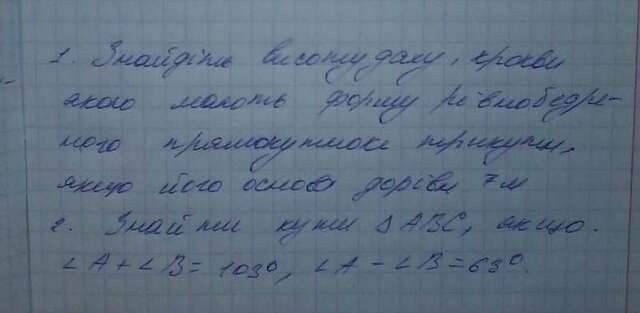 1. Знайдіть висоту даху, крокви
якого мають форму рівнобедре-
ного прямокутного трикутн.
якщо його основа дорівн 7м
2. Знайти кути ΔABC, якщо.
∠A+∠B=103°, ∠A-∠B=63°.